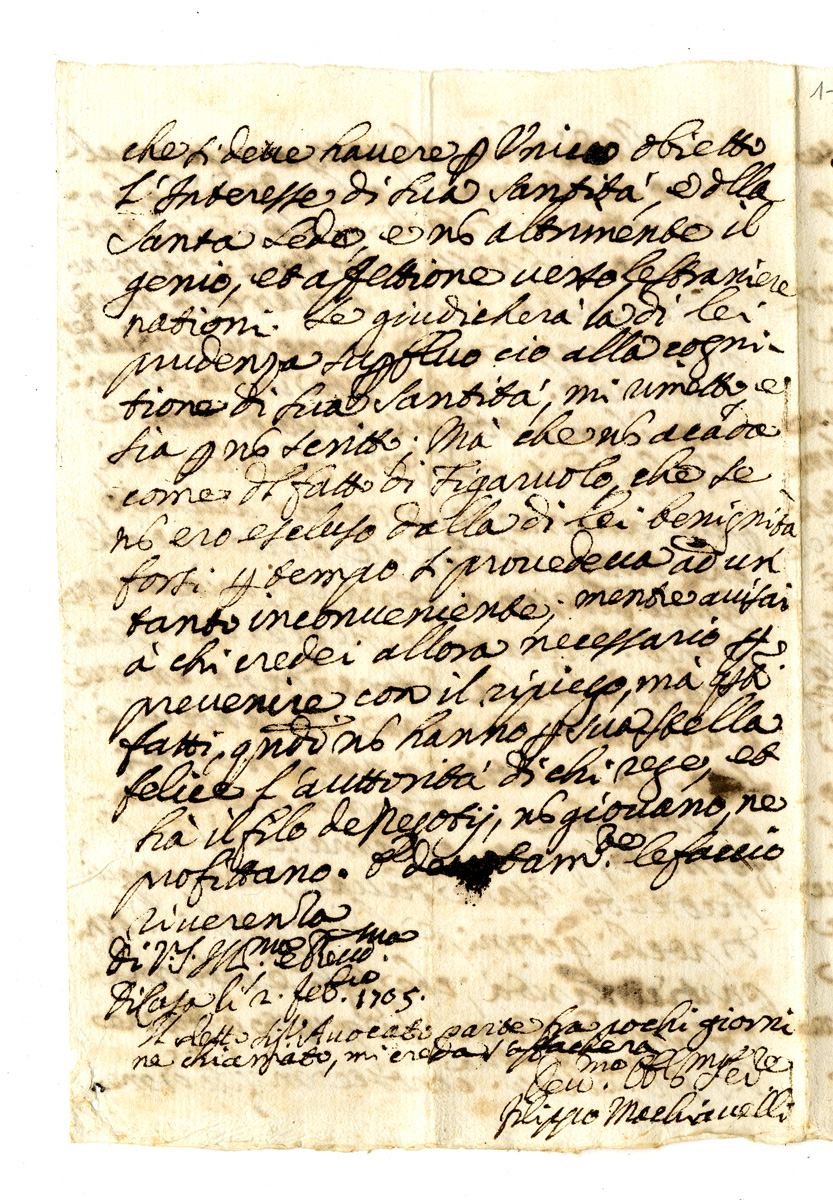 che si deve havere p Unico obietto
L'Interesse di Sua Santità, e dlla
Santa Sede, e nõ altrimente il
genio, et affettione verso le straniere
nationi. Se giudicherà la di lei
prudenza supfluo ciò alla cogni-
tione di Sua Santità, mi rimetto, e
sia p nõ scritto; Mà che nõ acada
come dl fatto di Figaruolo, che se
nõ ero escluso dalla di lei benignità
forsi p tempo si provedeva ad un
tanto inconveniente; mentre avisai
à chi credei allora necessario p
prevenire con il ripiego, mà qsti
fatti, qndo nõ hanno p sua stella
felice l'auttorità di chi rege, et
hà il filo de Negotij, nõ giovano, ne
profittano. E devotam.te le faccio
riverenza
Di V.S. Ill.ma e Rev.ma
Di Casa li 2. Feb.io 1705.
Il detto Sig. Avocato parte fra pochi giorni
ne chiamato, mi creda
Dev.mo Obl.mo Ser.re
Filippo Machiavelli
1-